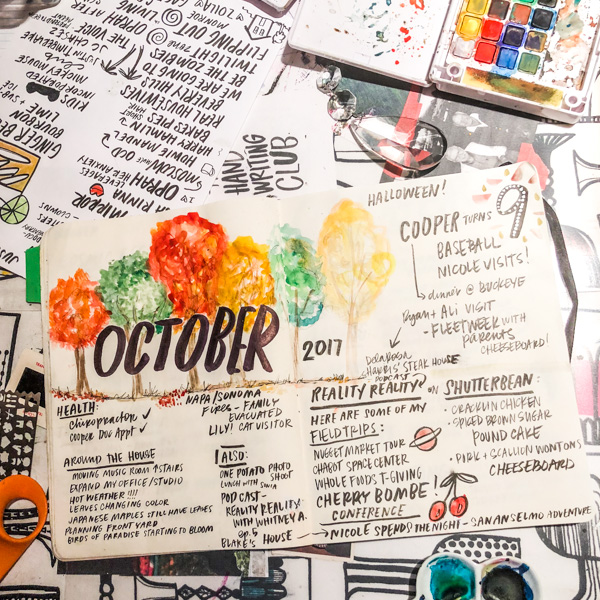 HALLOWEEN!
COOPER TURNS 9
BASEBALL
NICOLE VISITS!
dinner @ BUCKEYE
Bryan + Ali VISIT
- FLEETWEEK WITH
PARENTS
CHEESEBOARD!
HARRIS' STEAK HOUSE
PODCAST
OCTOBER
2017
HEALTH:
Chiropractor ✓
Cooper Doc Appt ✓
AROUND THE HOUSE
MOVING MUSIC ROOM ↑STAIRS
EXPAND MY OFFICE/STUDIO
HOT WEATHER !!!!
LEAVES CHANGING COLOR
JAPANESE MAPLES STILL HAVE LEAVES
PLANNING FRONT YARD
BIRDS OF PARADISE STARTING TO BLOOM
NAPA/SONOMA
FIRES - FAMILY
EVACUATED
LILY! CAT VISITOR
ALSO:
ONE POTATO PHOTO SHOOT
LUNCH WITH SONIA
PODCAST-
REALITY REALITY
WITH WHITNEY A.
ep. 5
BLAKE'S HOUSE → NICOLE SPENDS THE NIGHT - SAN ANSELMO ADVENTURE
REALITY REALITY ON SHUTTERBEAN:
HERE ARE SOME OF MY
FIELDTRIPS:
NUGGET MARKET TOUR
CHABOT SPACE CENTER
WHOLE FOODS T-GIVING
CHERRY BOMBE!
CONFERENCE
• CRACKLIN CHICKEN
• SPICED BROWN SUGAR
POUND CAKE
• PORK + SCALLION WONTONS
CHEESEBOARD
HAND
WRITING
CLUB
OPRAH AFTER
THE VOICE
JUSTIN TIMBERLAKE
JC CHASEZ
MICKEY MOUSE
INCORPORATED
KIDS
BOURBON + SUB ICE
LIME
GINGER BE
ZOLA
MONROE
FLIPPING OUT
TWILIGHT ZONE
BE THE ZOMBIES
WE ARE GOING TO
BEVERLY HILLS
REAL HOUSEWIVES
BAKES PIES
HARRY HAMLIN
HOWIE MANDEL
MOSCOW
OCD
OPRAH HER ANXIETY
LEVERAGES
RINNA
MIRROR
CLOWNS